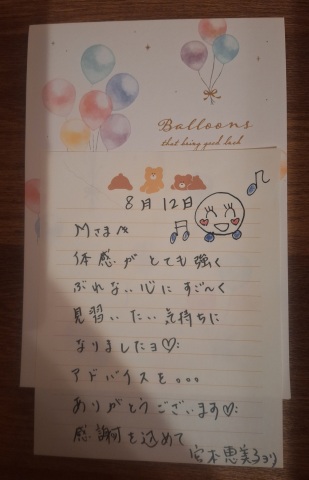 Balloons
that bring good luck
8月12日
Mさま
体感がとても強く
ぶれない心にすご〜く
見習いたい気持ちに
なりましたヨ♡
アドバイスを。。。
ありがとうございます♡
感謝を込めて
恵美子ヨリ